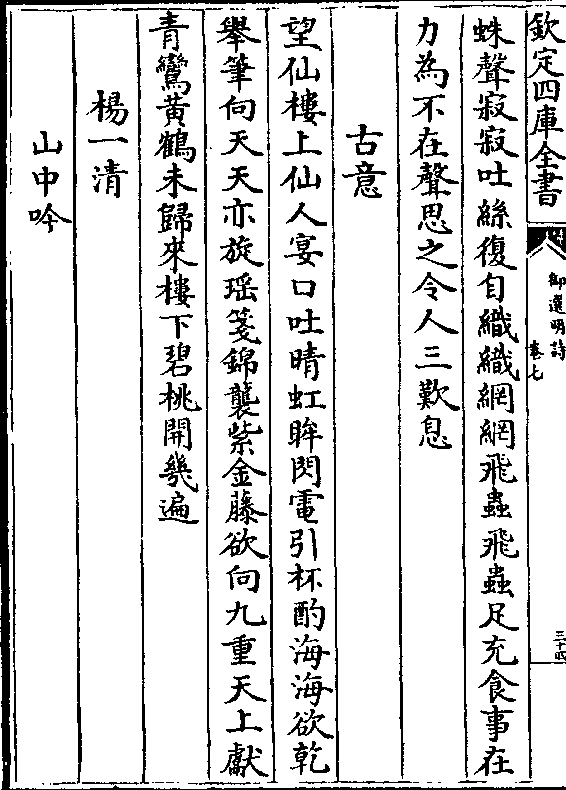 欽定四庫全書
御選明詩
卷七
三十四
蛛聲寂寂吐絲復自織織網網飛蟲飛蟲足充食事在
力為不在聲思之令人三歎息
古意
望仙樓上仙人宴口吐晴虹眸閃電引杯酌海海欲乾
舉筆向天天亦旋瑤箋錦襲紫金藤欲向九重天上獻
青鸞黃鶴未歸來樓下碧桃開幾遍
楊一清
山中吟